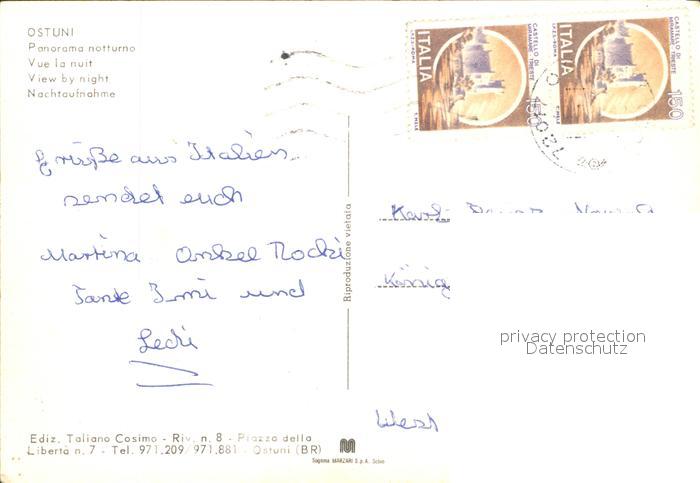 OSTUNI
Panorama notturno
Vue la nuit
View by night
Nachtaufnahme
ITALIA
CASTELLO DI
MIRAMARE TRIESTE
I.P.Z.S.-ROMA
E. MELE
150
ITALIA
CASTELLO DI
MIRAMARE TRIESTE
I.P.Z.S.-ROMA
E. MELE
150
Grüße aus Italien
sendet euch
Martina Onkel Rocki
Tante Immi und
Riproduzione vietata
König
privacy protection
Datenschutz
West
Ediz. Taliano Cosimo - Riv. n. 8 - Piazza della
Libertà n. 7 - Tel. 971.209/971.881 - Ostuni (BR)
Sagona MARZARI S.p.A. Schio